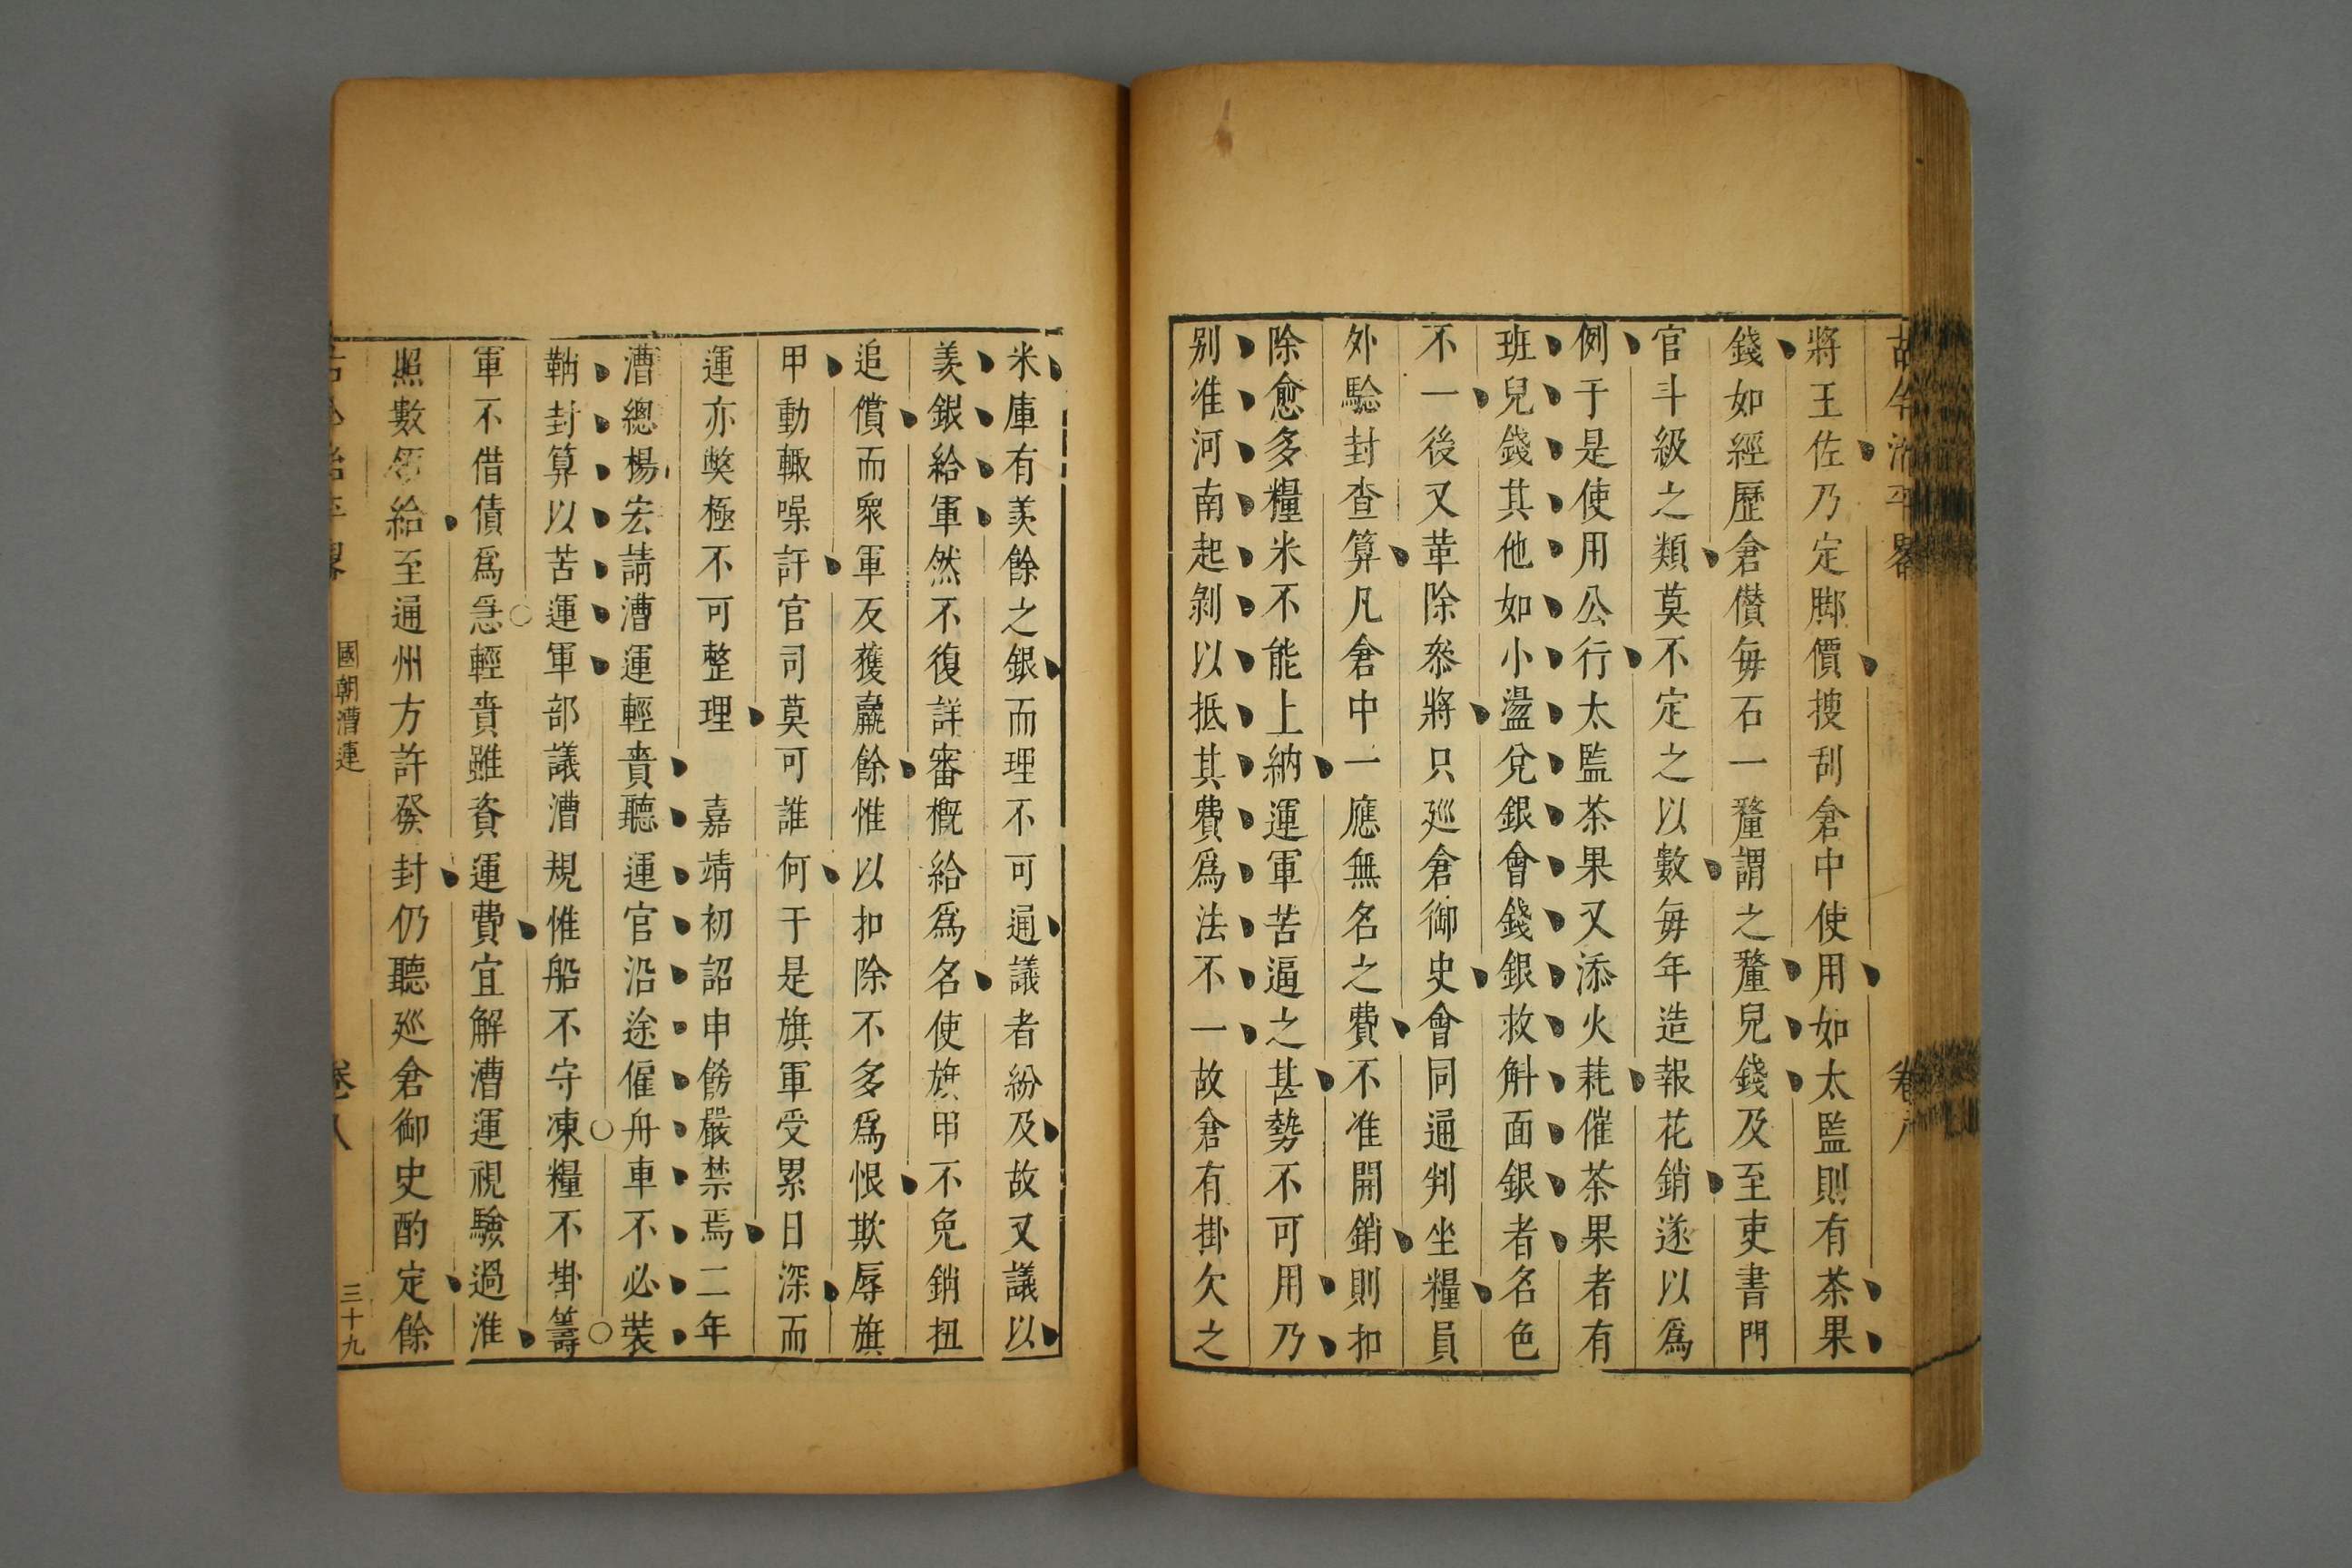 古今治平畧
卷八
將王佐乃定脚價搜刮倉中使用如太監則有茶果
錢如經歷倉儹毎石一釐謂之釐兒錢及至吏書門
官斗級之類莫不定之以數毎年造報花銷遂以爲
例于是使用公行太監茶果又添火耗催茶果者有
班兒錢其他如小盪兌銀會錢銀救斛面銀者名色
不一後又革除叅將只廵倉御史會同通判坐糧員
外騐封查算凡倉中一應無名之費不准開銷則扣
除愈多糧米不能上納運軍苦逼之甚勢不可用乃
别准河南起剝以抵其費爲法不一故倉有掛欠之
米庫有羨餘之銀而理不可通議者紛及故又議以
羨銀給軍然不復詳審概給爲名使旗甲不免銷扭
追償而衆軍反獲麄餘惟以扣除不多爲恨欺辱旗
甲動輒噪訐官司莫可誰何于是旗軍受累日深而
運亦獘極不可整理　嘉靖初詔申飭嚴禁焉二年
漕總楊宏請漕運輕賫聽運官沿途僱舟車不必裝
鞘封算以苦運軍部議漕規惟船不守凍糧不掛籌
軍不借債爲急輕賫雖資運費宜解漕運視驗過淮
照數給至通州方許發封仍聽廵倉御史酌定餘
國朝漕運
卷八
三十九